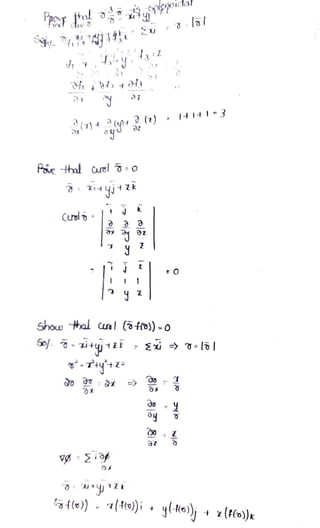 Prove that
r̄ = xi+yj+zk = Σxi r = |r̄|
∂f1 + ∂f2 + ∂f3
∂x ∂y ∂z
∂/∂x (x) + ∂/∂y (y) + ∂/∂z (z) = 1+1+1 = 3
Prove that curl r̄ = 0
r̄ = xi+yj+zk
curl r̄ = | i j k |
| ∂/∂x ∂/∂y ∂/∂z |
| x y z |
= | i j k |
| 1 1 1 | = 0
| x y z |
Show that curl (r̄ f(r)) = 0
Sol. r̄ = xi+yj+zk = Σxi ⇒ r = |r̄|
r² = x²+y²+z²
2r ∂r/∂x = 2x ⇒ ∂r/∂x = x/r
∂r/∂y = y/r
∂r/∂z = z/r
∇φ = Σ i ∂φ/∂x
r̄ = xi+yj+zk
(r̄ f(r)) = x(f(r))i + y(f(r))j + z(f(r))k